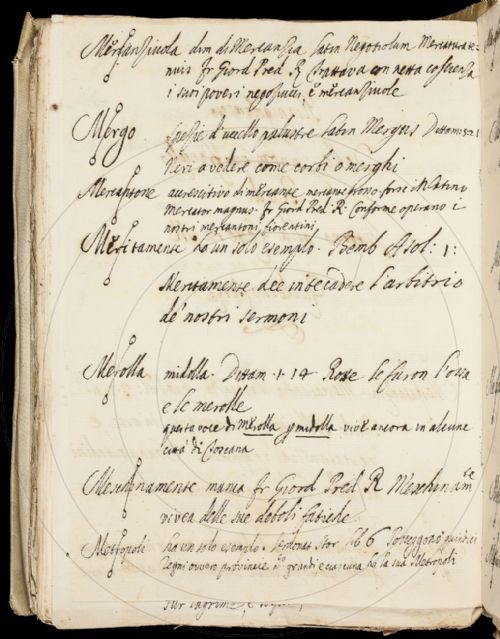 Mercanziuola dim di Mercanzia Latin Negotiolum Mercatura te
nuis Fr Giord Pred R Trattava con netta coscienza
i suoi poveri negoziucci, e mercanziuole
Mergo Spezie d'uccello palustre Latin Mergus Dittam:
Neri a vedere come corbi o merghi
Mercantone accrescitivo di mercante mercatantone forse il Latino
mercator magnus. Fr Giord Pred: R: Conforme operano i
nostri mercantoni fiorentini
Meritamente ha un solo esempio. Bemb Asol: 1:
Meritamente dee in te cadere l'arbitrio
de' nostri sermoni
Merolla midolla. Dittam. 1. 14 Rose le furon l'ossa
e le merolle
questa voce di Merolla p midolla vive ancora in alcune
città di Toscana
Meschinamente manca Fr Giord Pred R Meschinamte
vivea delle sue deboli fatiche
Metropoli ha un solo esempio. Serdonat Stor lib 6 quindici
regni ovvero provincie grandi e ciascuna ha la sua Metropoli